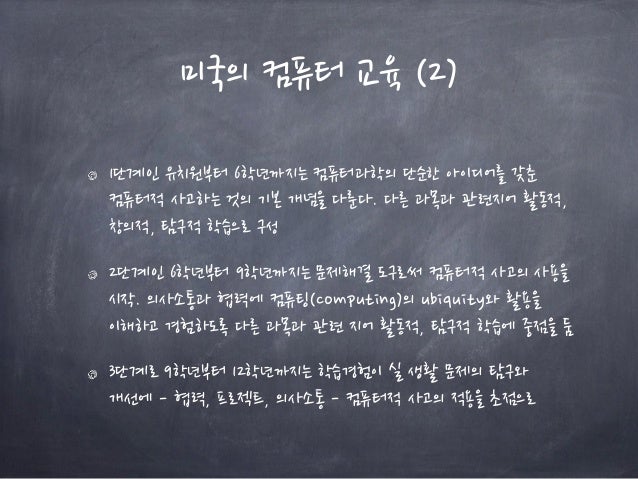 미국의 컴퓨터 교육 (2)
1단계인 유치원부터 6학년까지는 컴퓨터과학의 단순한 아이디어를 갖춘
컴퓨터적 사고하는 것의 기본 개념을 다룬다. 다른 과목과 관련지어 활동적,
창의적, 탐구적 학습으로 구성
2단계인 6학년부터 9학년까지는 문제해결 도구로써 컴퓨터적 사고의 사용을
시작. 의사소통과 협력에 컴퓨팅(computing)의 ubiquity와 활용을
이해하고 경험하도록 다른 과목과 관련 지어 활동적, 탐구적 학습에 중점을 둠
3단계로 9학년부터 12학년까지는 학습경험이 실 생활 문제의 탐구와
개선에 - 협력, 프로젝트, 의사소통 - 컴퓨터적 사고의 적용을 초점으로